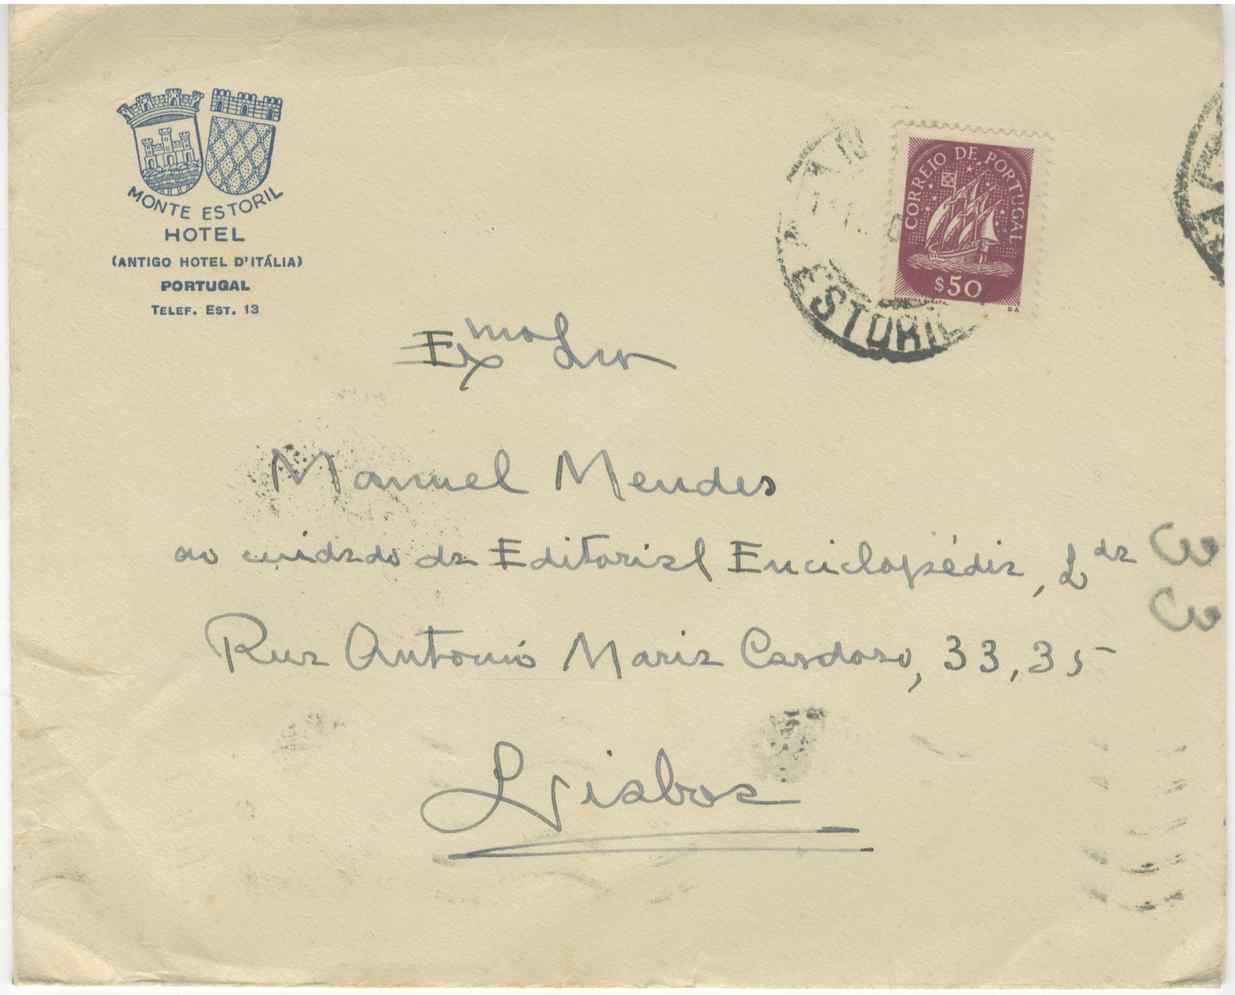 MONTE ESTORIL
HOTEL
(ANTIGO HOTEL D'ITÁLIA)
PORTUGAL
TELEF. EST. 13
CORREIO DE PORTUGAL
$50
ESTORIL
Exmo Snr
Manuel Mendes
ao cuidado da Editorial Enciclopédia, Lda
Rua António Maria Cardoso, 33, 35
Lisboa